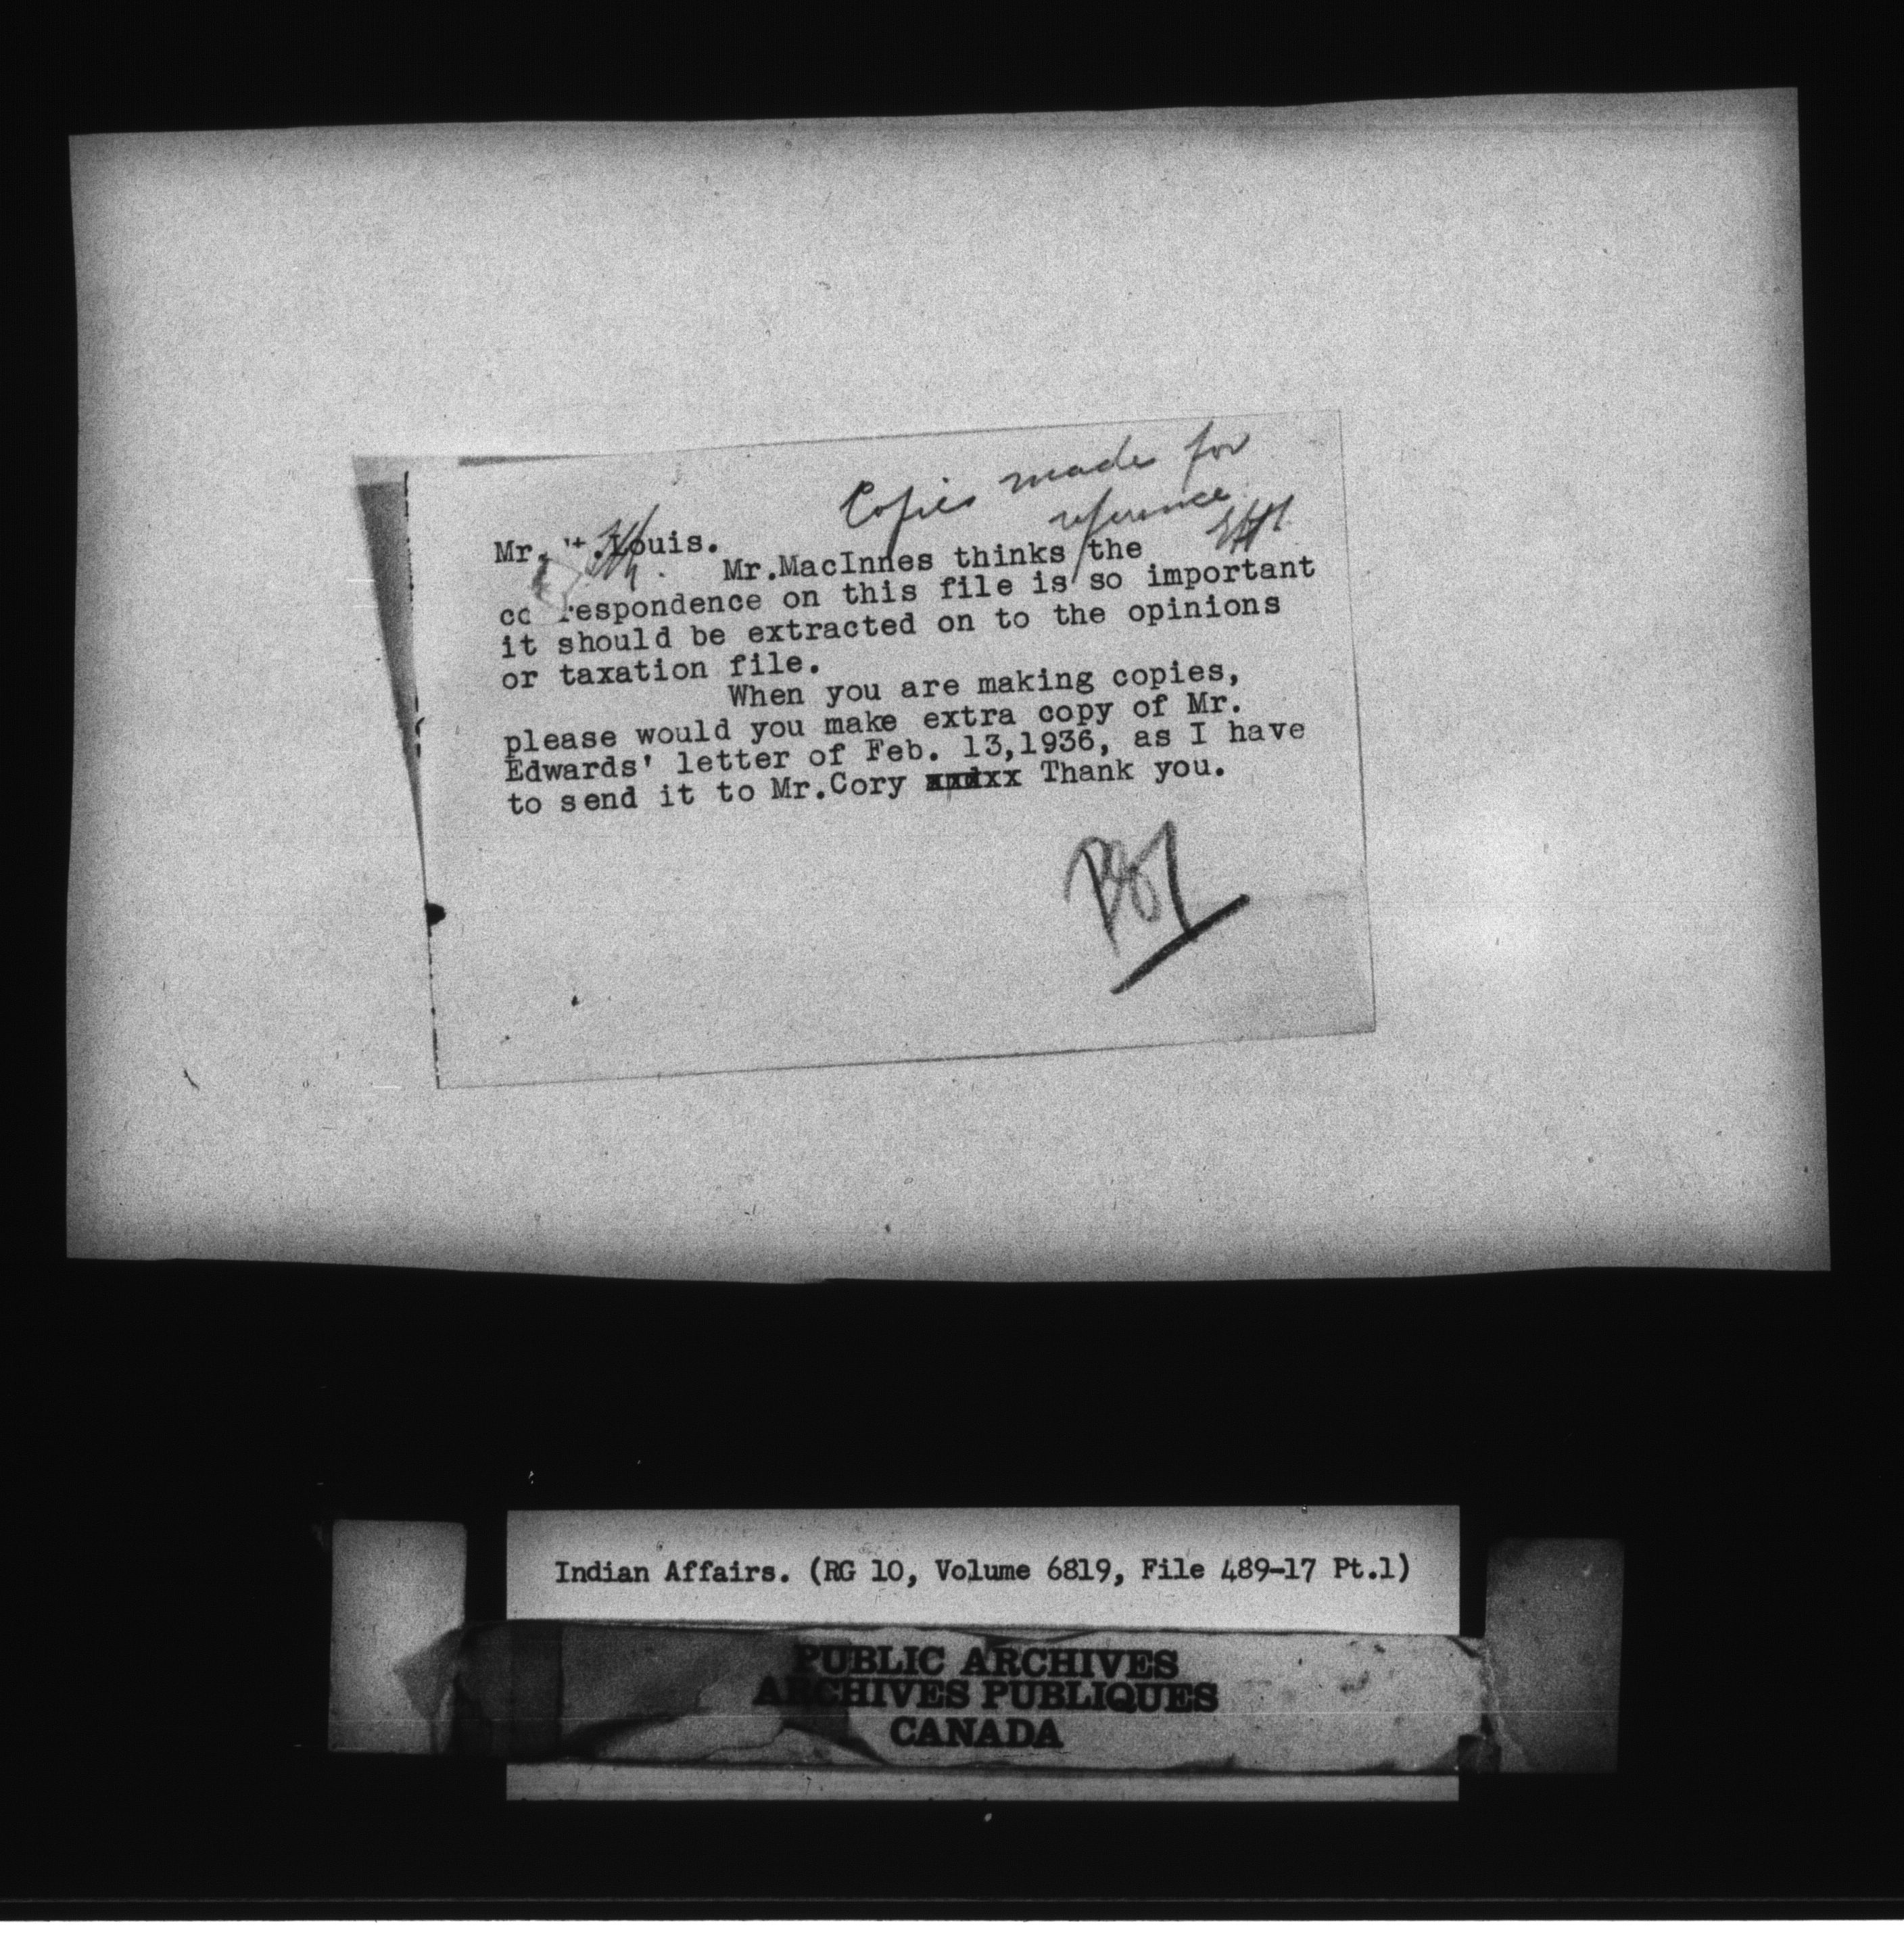 Copies made for
reference
Mr. St.Louis.
Mr.MacInnes thinks the
correspondence on this file is so important
it should be extracted on to the opinions
or taxation file.
When you are making copies,
please would you make extra copy of Mr.
Edwards' letter of Feb. 13,1936, as I have
to send it to Mr.Cory xxdxx Thank you.
Indian Affairs. (RG 10, Volume 6819, File 489-17 Pt.1)
PUBLIC ARCHIVES
ARCHIVES PUBLIQUES
CANADA